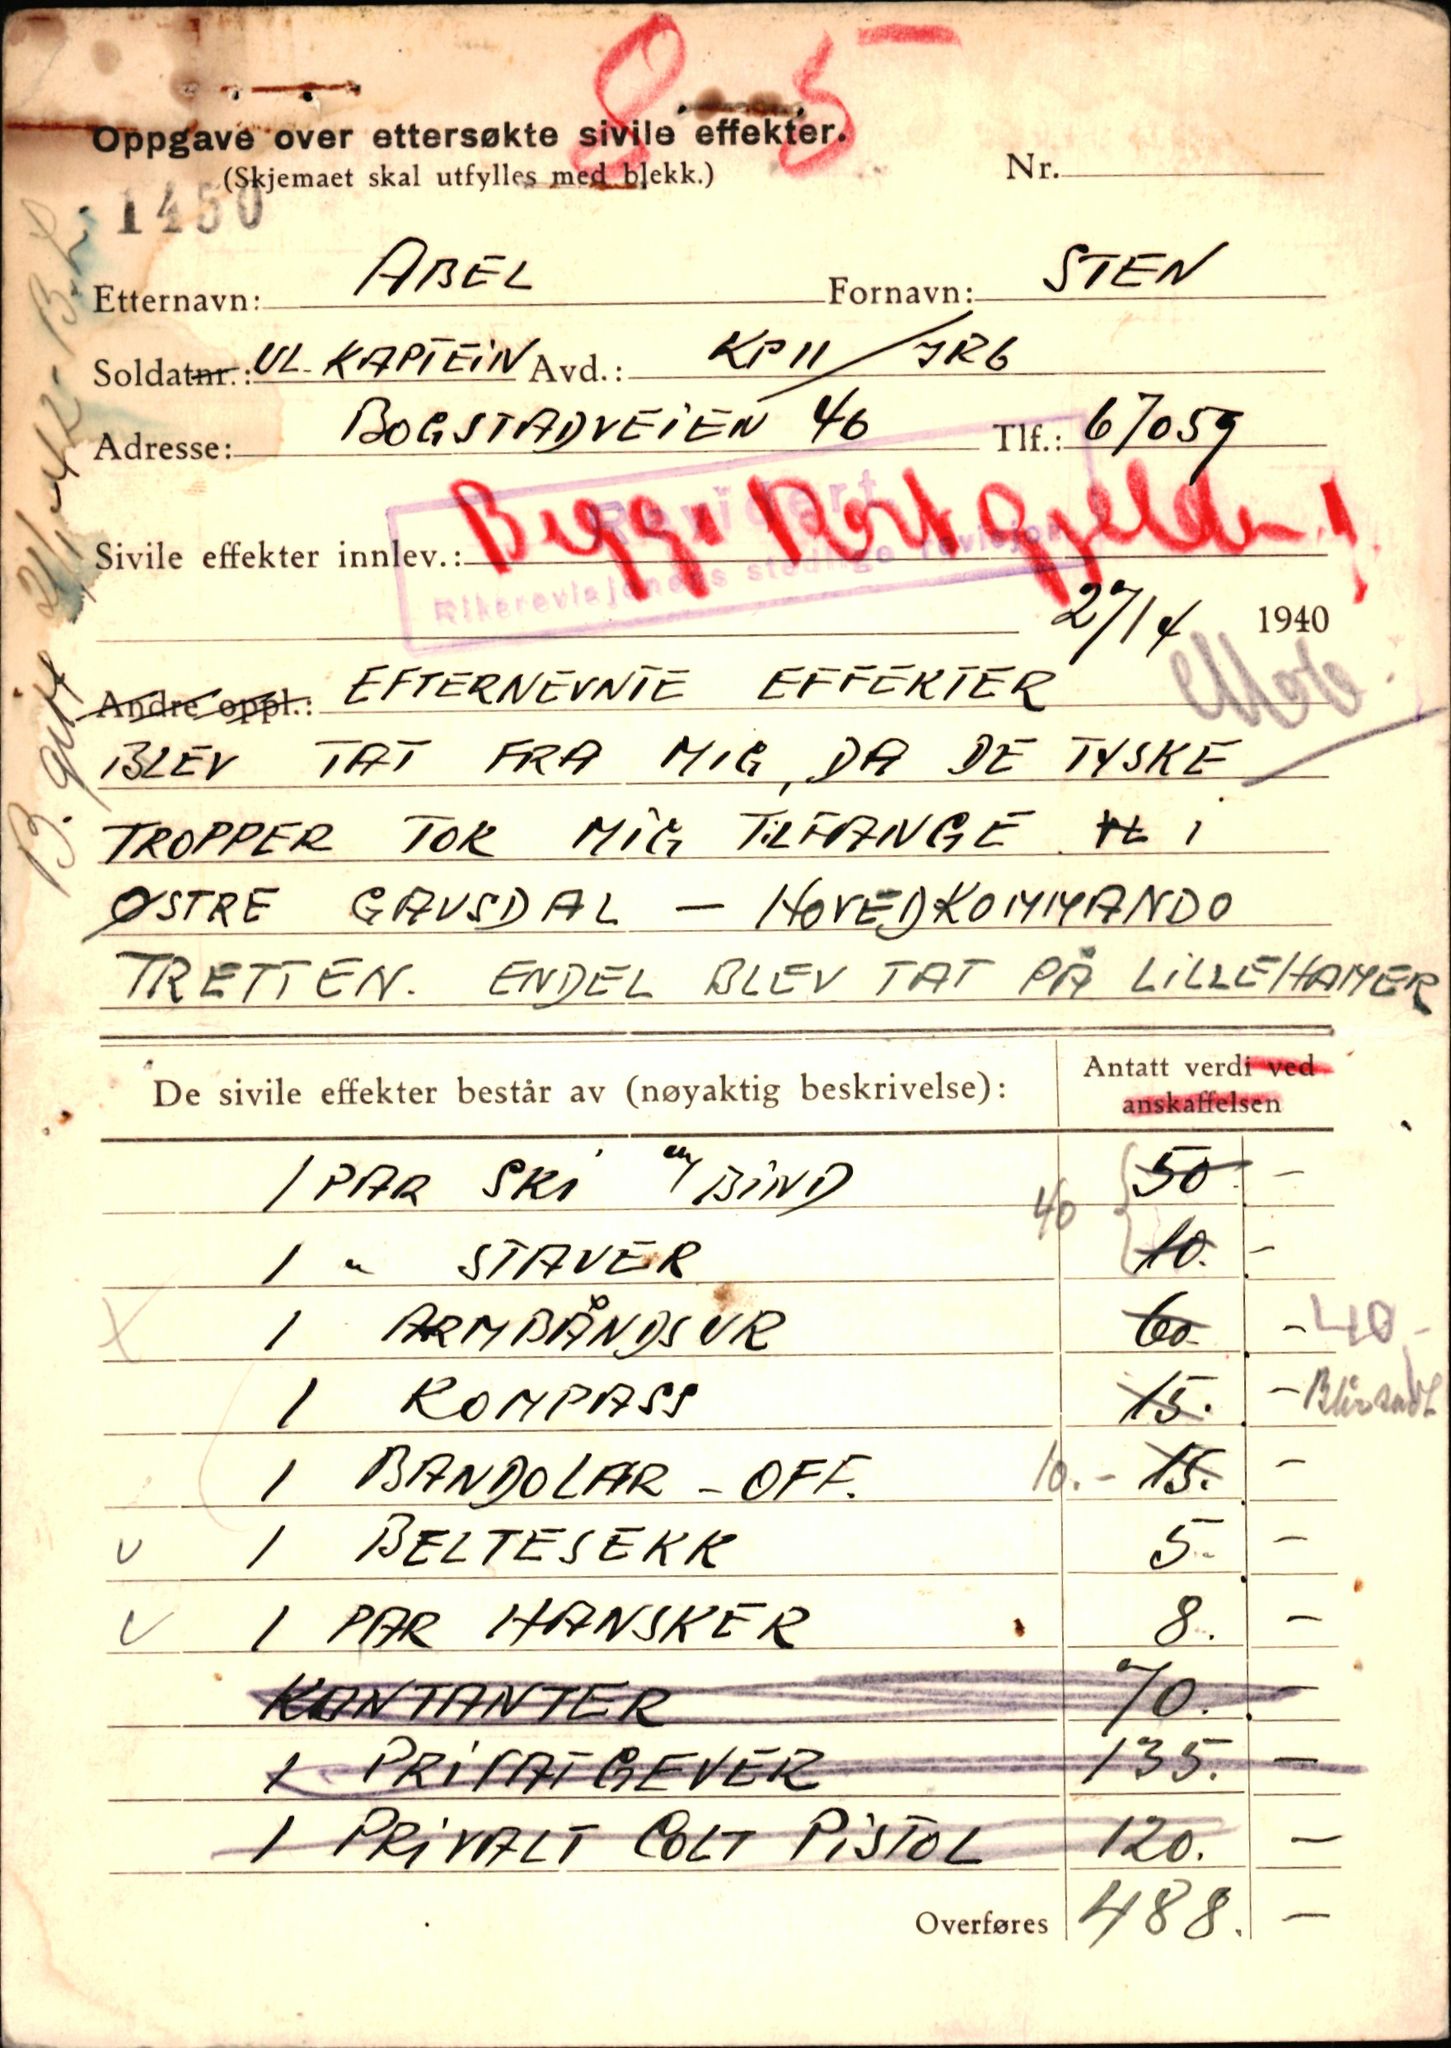 85-
Oppgave over ettersøkte sivile effekter.
(Skjemaet skal utfylles med blekk.)
Nr.
1450
Etternavn: ABEL Fornavn: STEN
Soldatnr.: VL KAPTEIN Avd.: KP11/JR6
Adresse: BOGSTADVEIEN 46 Tlf.: 67059
Revidert
Rikerevisjonens stedlige revisjon
Sivile effekter innlev.: Begge kort gjelder!
27/4 1940
Andre oppl.: EFTERNEVNTE EFFEKTER
BLEV TAT FRA MIG, DA DE TYSKE
TROPPER TOK MIG TILFANGE I
ØSTRE GAUSDAL — HOVEDKOMMANDO
TRETTEN. ENDEL BLEV TAT PÅ LILLEHAMER
De sivile effekter består av (nøyaktig beskrivelse): Antatt verdi ved anskaffelsen
1 PAR SKI m/BIND 40 50 -
1 " STAVER 10. -
1 ARMBÅNDSUR 60 - 40 -
1 KOMPASS 15. -
1 BANDOLÆR - OFF. 10. - 15. -
v 1 BELTESEKK 5. -
v 1 PAR HANSKER 8. -
KONTANTER 70. -
1 PRIVATGEVER 135. -
1 PRIVALT COLT PISTOL 120. -
Overføres 488. -